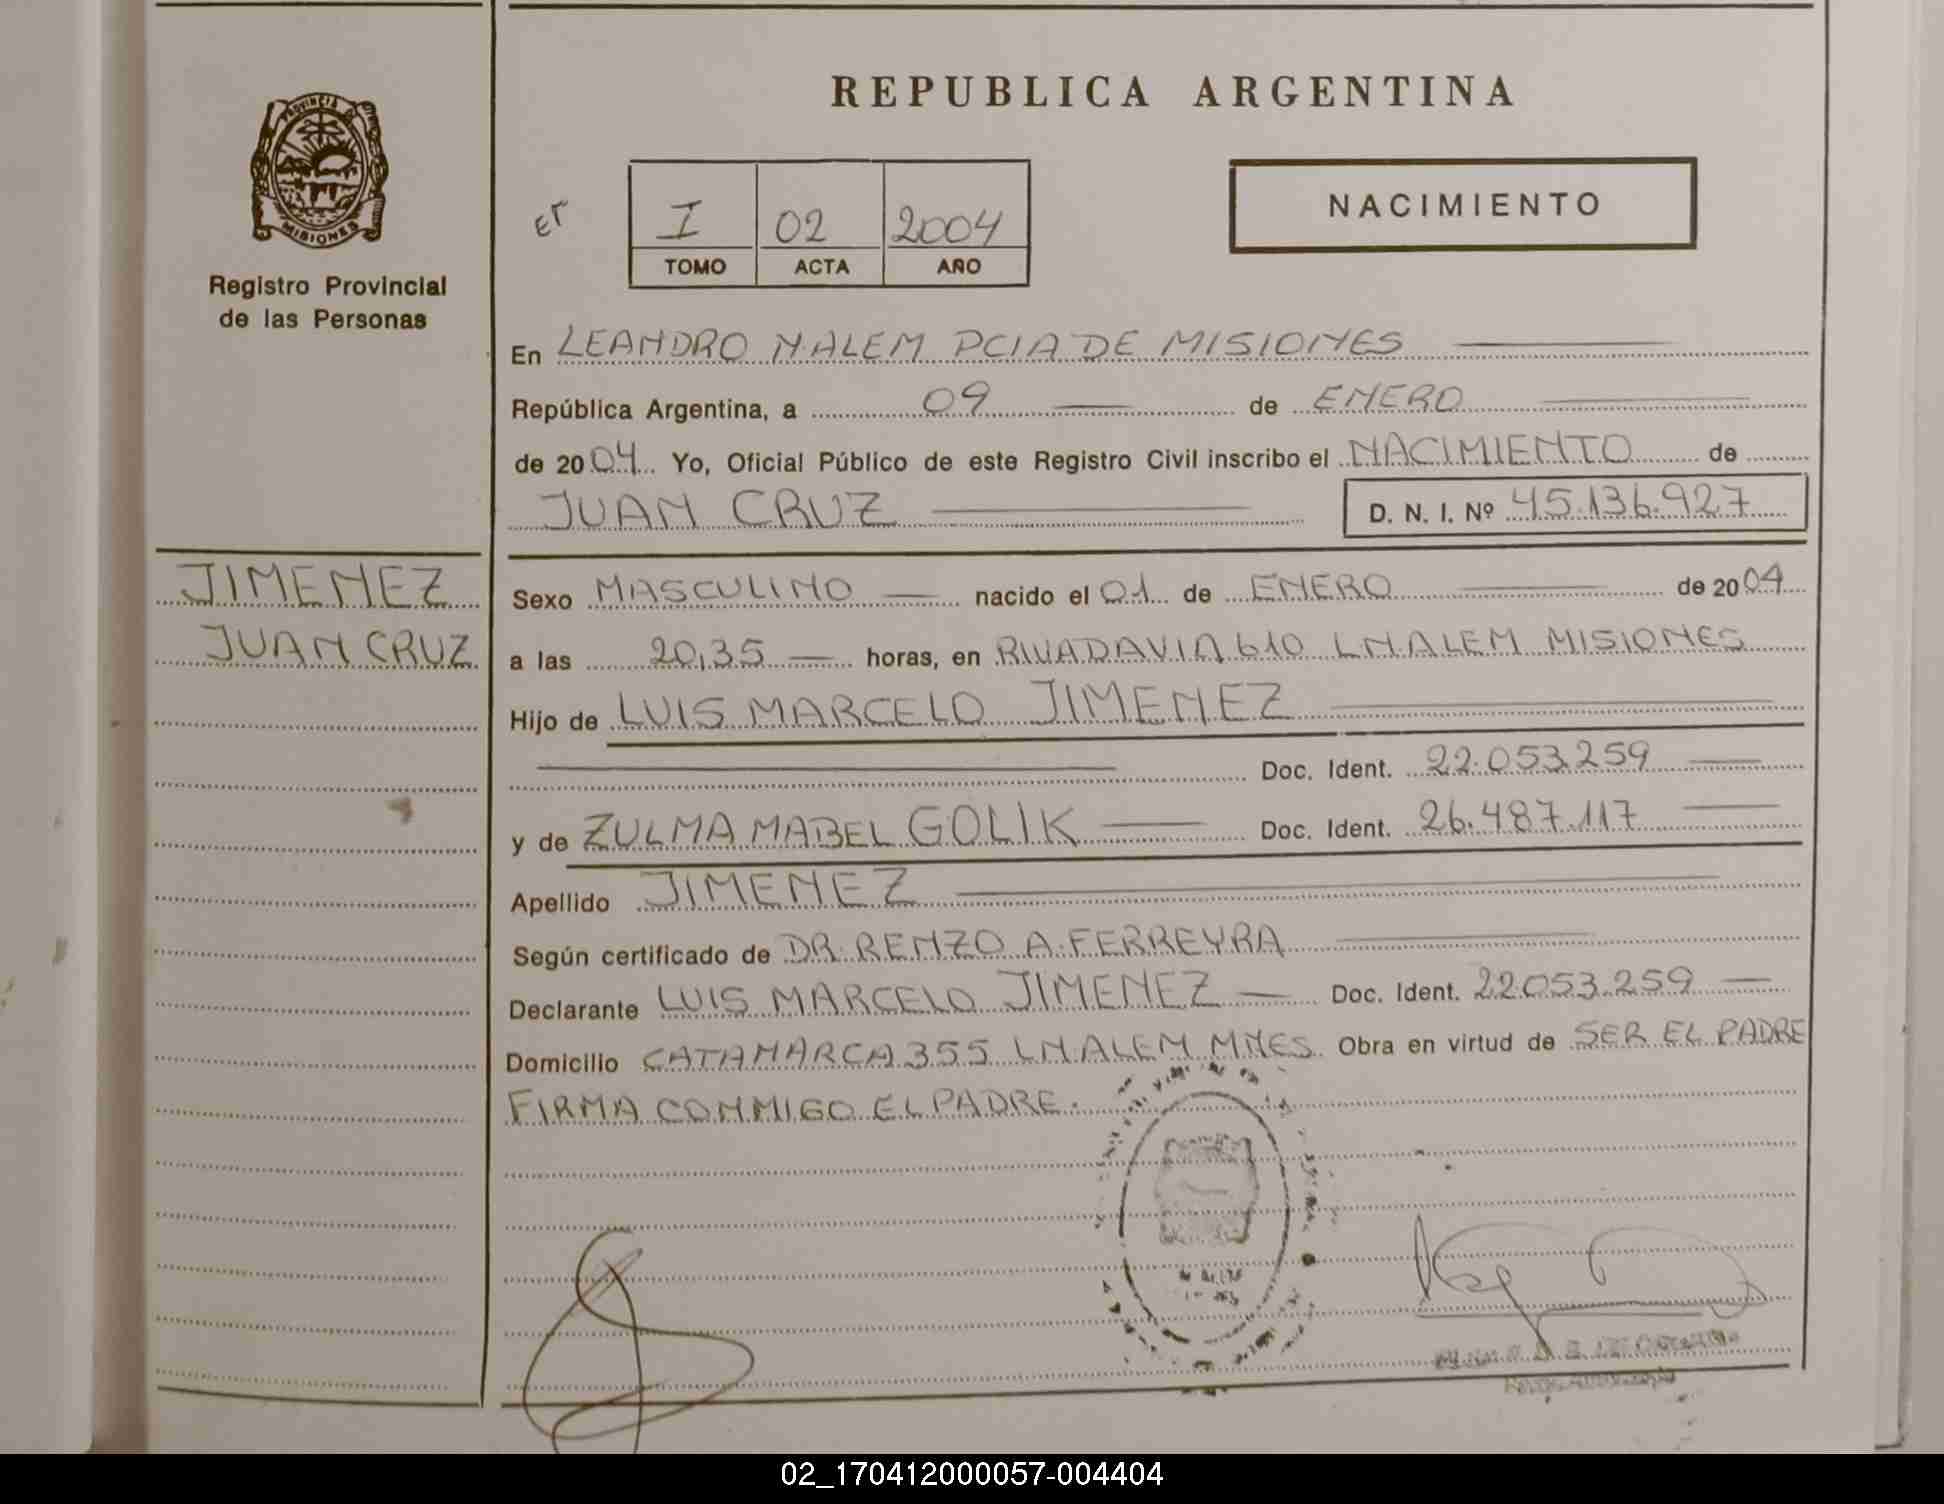 REPUBLICA ARGENTINA
PROVINCIA DE
MISIONES
Registro Provincial
de las Personas
I 02 2004
TOMO ACTA AÑO
NACIMIENTO
En LEANDRO N. ALEM PCIA DE MISIONES
República Argentina, a 09 de ENERO
de 2004 Yo, Oficial Público de este Registro Civil inscribo el NACIMIENTO de
JUAN CRUZ D. N. I. Nº 45.136.927
JIMENEZ
JUAN CRUZ
Sexo MASCULINO nacido el 01 de ENERO de 2004
a las 20,35 horas, en RIVADAVIA 610 L.N.ALEM MISIONES
Hijo de LUIS MARCELO JIMENEZ
Doc. Ident. 22.053.259
y de ZULMA MABEL GOLIK Doc. Ident. 26.487.117
Apellido JIMENEZ
Según certificado de DR. RENZO A. FERREYRA
Declarante LUIS MARCELO JIMENEZ Doc. Ident. 22053.259
Domicilio CATAMARCA 355 L.N.ALEM MNES. Obra en virtud de SER EL PADRE
FIRMA CONMIGO EL PADRE.
02_170412000057-004404